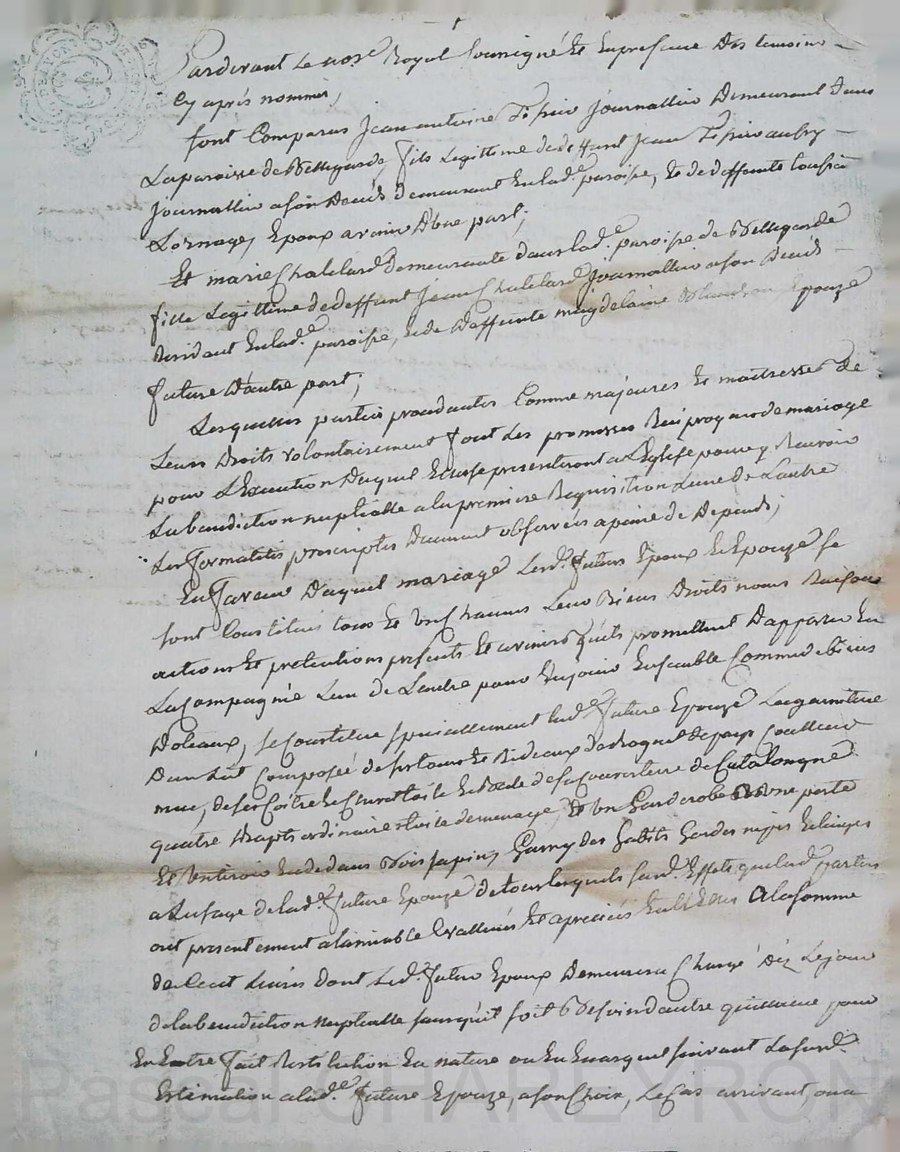 Pardevant le nore Royal soussigné et en presence des temoins
cy après nommés,
sont Comparus Jean antoine journallier Demeurant dans
La paroisse de Bellegarde, fils Legittime de deffunt Jean
journallier a son Deces demeurant En lad.e paroisse, Et de deffunte
Lornage, Epoux avenir D'une part;
Et marie Chatelard Demeurante dans lad.e paroise de Bellegarde
fille Legittime de deffunt Jean Chatelard Journallier a son Deces
Residant En lad.e paroisse, et de Deffunte magdelaine Epouze
future D'autre part;
Lesquelles parties procedantes Comme majeures Et maitresses de
Leurs Droits volontairement font Les promesses Reciproques de mariage
pour L'Execution Duquel Elles se presenteront a L'Eglise pour y Recevoir
La benediction nuptialle a la premiere Requisition L'une de L'autre
Les formalités prescriptes Duement observées a peine de Depends;
En faveur Duquel mariage Lesd. futurs Epoux Et Epouze se
sont Constitués tous Et Uns Chacuns Leurs Biens Droits noms Raisons
actions Et pretentions presents Et avenirs qu'ils promettent D'apporter En
La Compagnie L'un de L'autre pour En jouir Ensemble Comme de biens
Dotaux, se Constitue speciallement lad.e future Epouze La garniture
D'un Lit Composée de ses tours Et Rideaux de
quatre draps ordinaire toile de menage, Et Un Garderobe a Une porte
Et Un tiroir En dedans Bois sapin, Garny des habits hardes nipes Et linges
a L'usage de lad.e future Epouze de tous lesquels susd. Effets que lesd. parties
ont presentement a l'aimiable Evallués Et apreciés a la somme
de Cent Livres dont Led. futur Epoux Demeurera Chargé Dèz Le jour
de la benediction nuptialle sans qu'il soit Besoin d'autre quittance pour
En Etre fait Restitution En nature ou En suivant La susd.e
Estimation a lad.e future Epouze, a son Choix, Le Cas arrivant, ou a
Pascal CHAREYRON